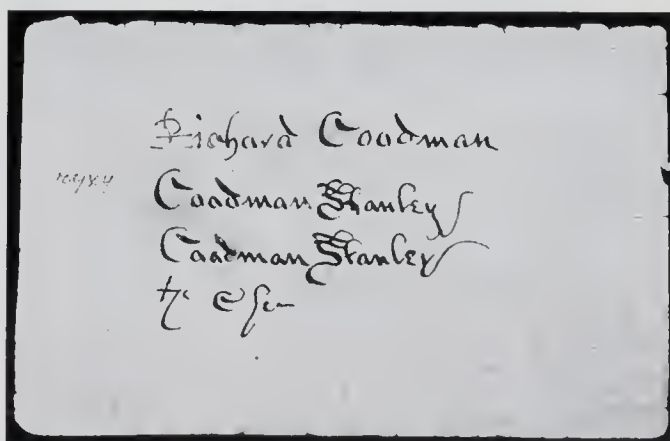 Richard Coodman
Coodman Stanley
Coodman Stanley